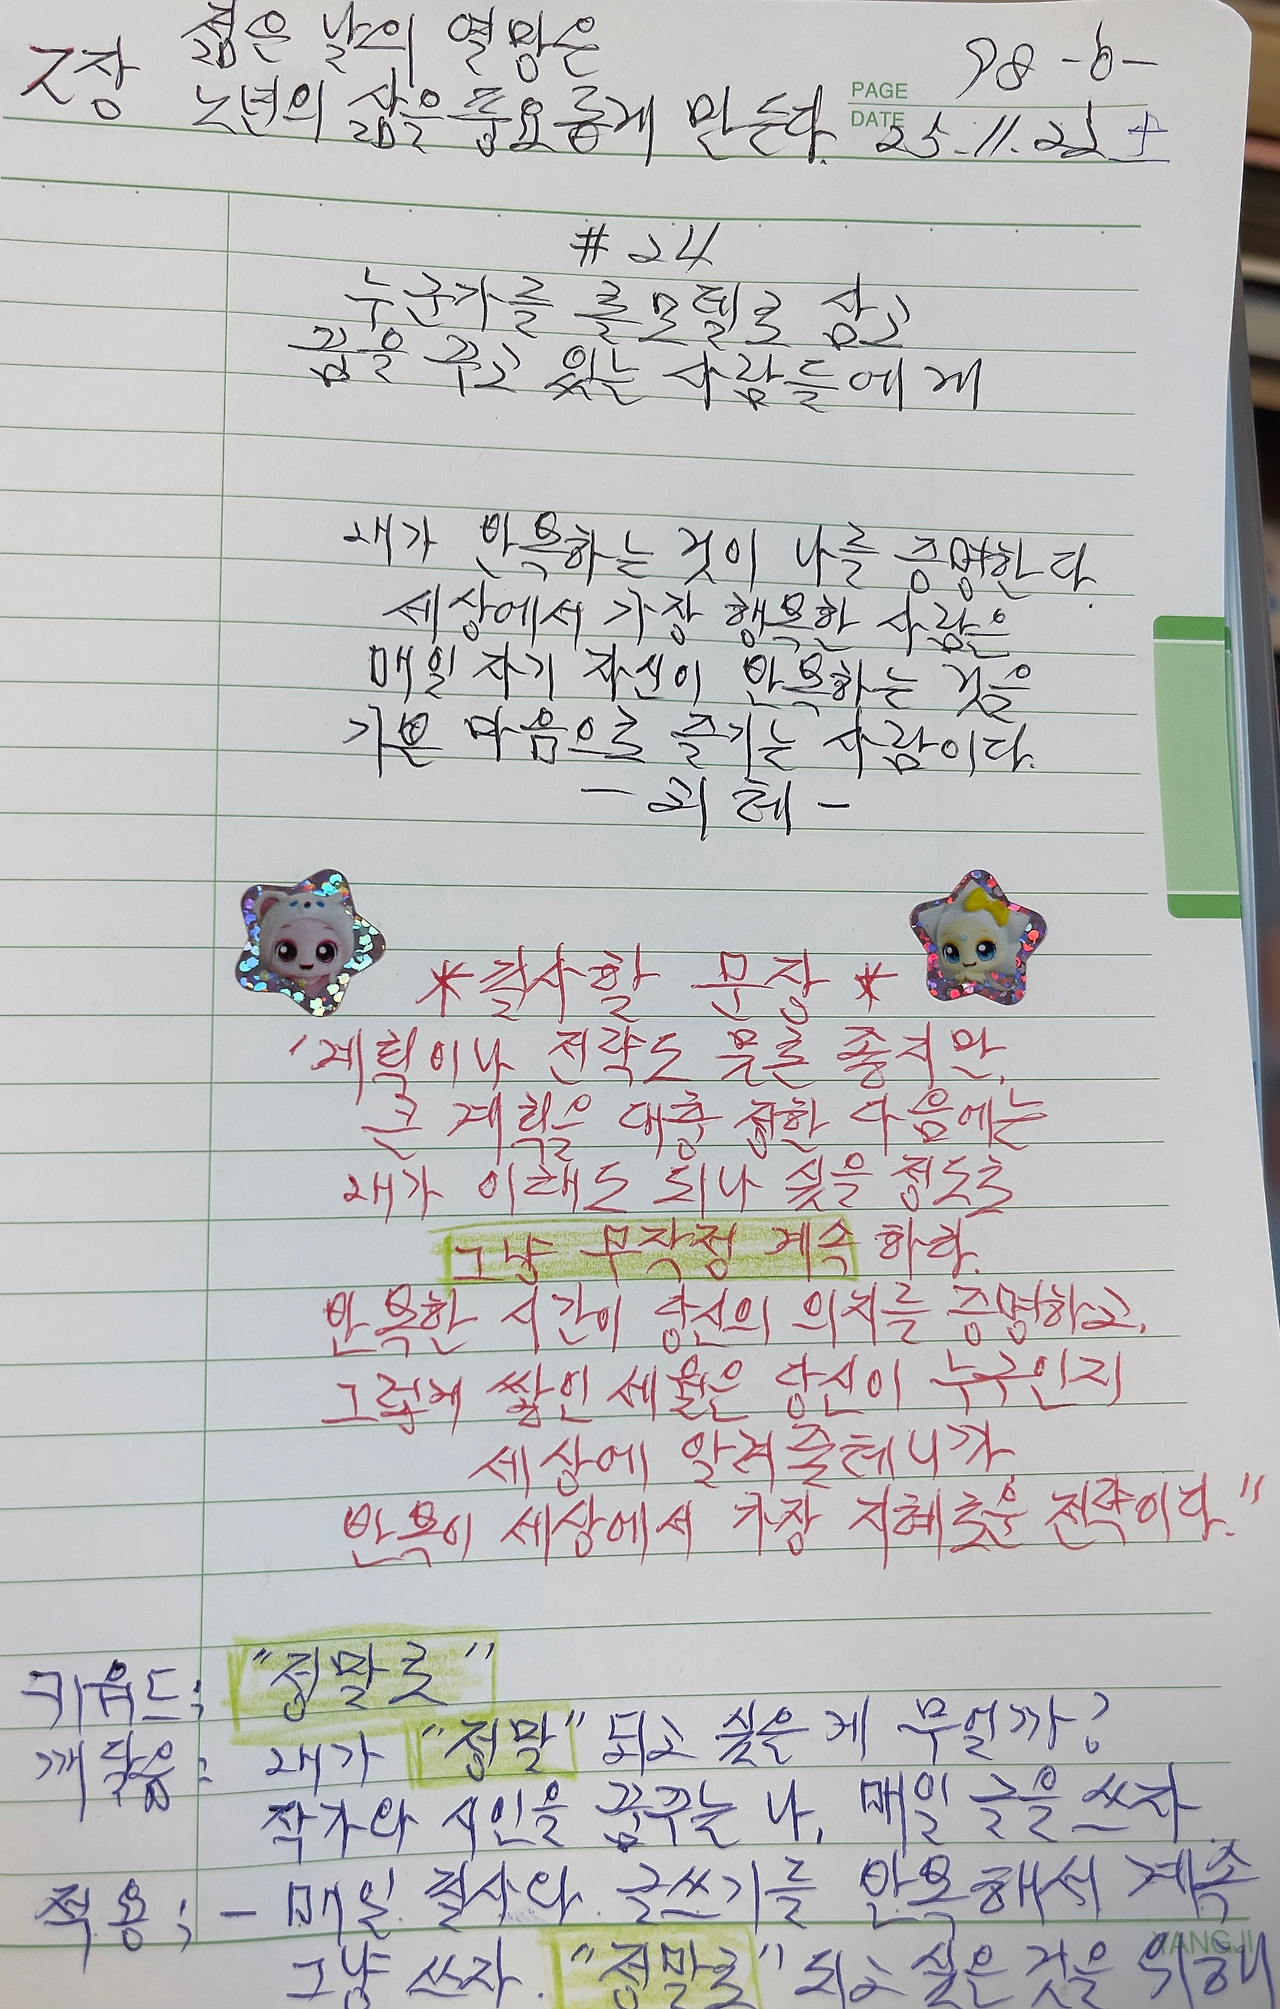 젊은 날의 열망은
7장 노년의 삶을 풍요롭게 만든다.
98-6-
PAGE
DATE 25.11.22 토
#24
누군가를 롤모델로 삼고
꿈을 꾸고 있는 사람들에게
내가 반복하는 것이 나를 증명한다.
세상에서 가장 행복한 사람은
매일 자기 자신이 반복하는 것을
기쁜 마음으로 즐기는 사람이다.
- 괴테 -
*필사할 문장*
"계획이나 전략도 물론 좋지만,
큰 계획을 대충 정한 다음에는
내가 이래도 되나 싶을 정도로
그냥 무작정 계속 하라.
반복한 시간이 당신의 의지를 증명하고,
그렇게 쌓인 세월은 당신이 누구인지
세상에 알려줄테니까
반복이 세상에서 가장 지혜로운 전략이다."
키워드; "정말로"
깨달음: 내가 "정말" 되고 싶은 게 무얼까?
작가와 시인을 꿈꾸는 나, 매일 글을 쓰자
적용; - 매일 필사와 글쓰기를 반복해서 계속
그냥 쓰자. "정말로" 되고 싶은 것을 위해
YANGJI